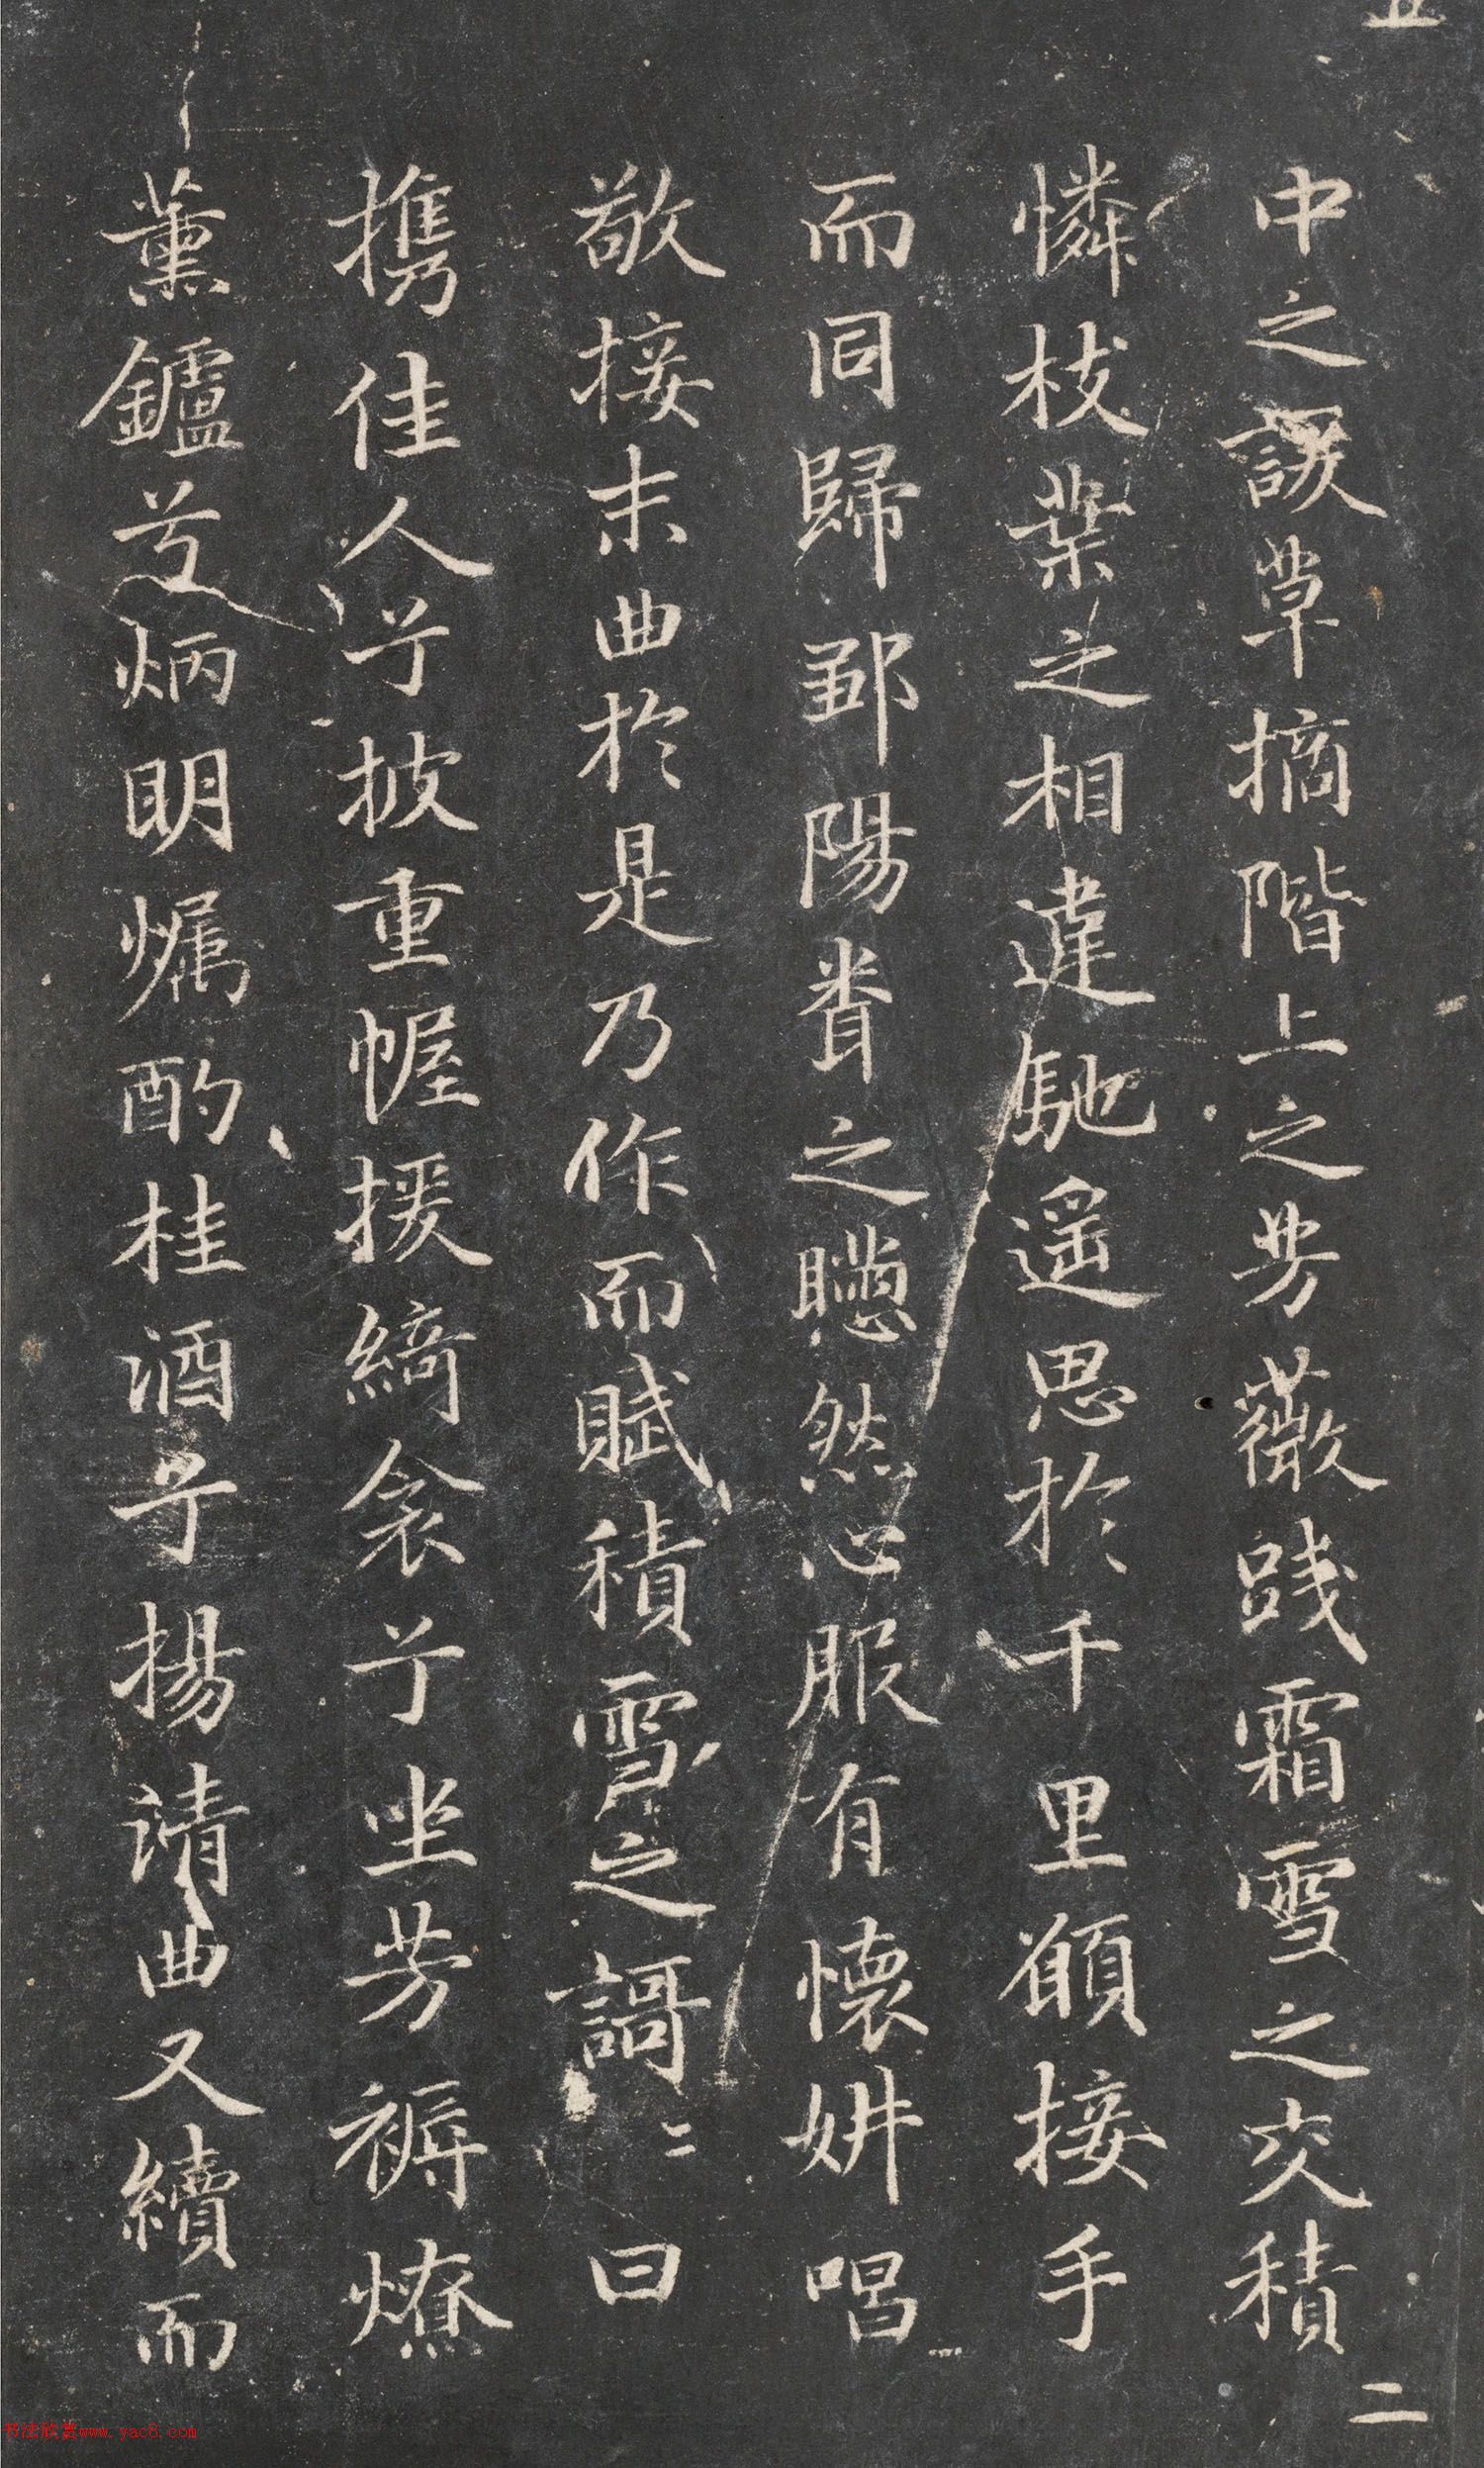 中之諼草摘階上之芳薇踐霜雪之交積
憐枝葉之相違馳遥思於千里願接手
而同歸鄒陽聞之懣然心服有懷妍唱
敬接末曲於是乃作而賦積雪之謌〻曰
携佳人兮披重幄援綺衾兮坐芳褥燎
薰鑪兮炳明燭酌桂酒兮揚清曲又續而
二
书法欣赏www.yac8.com